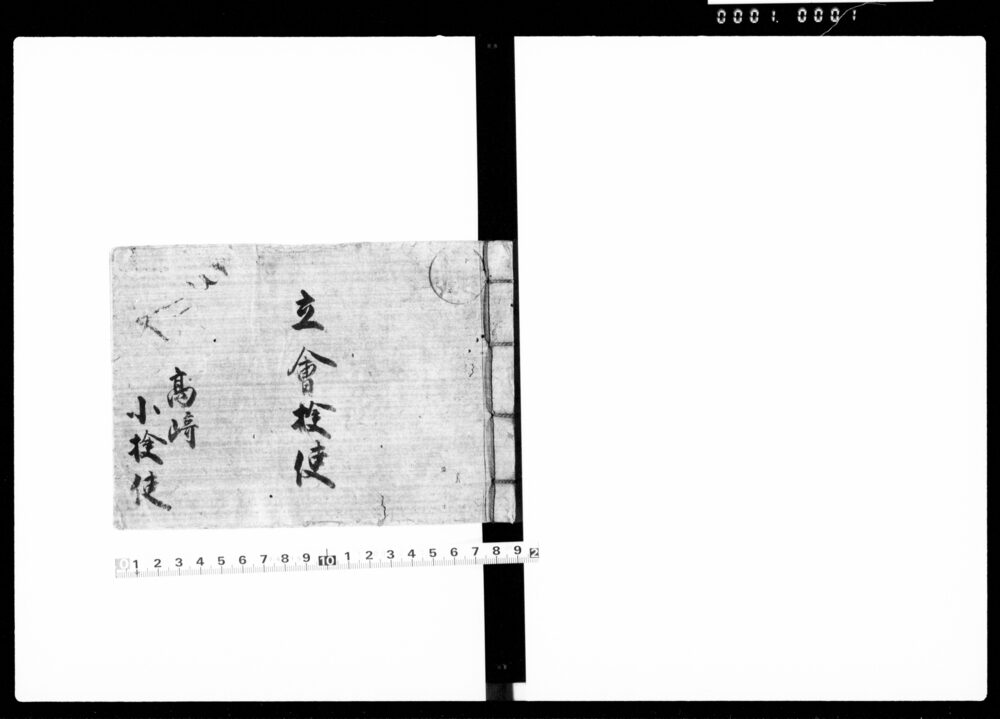 0001. 0001
立會検使
高﨑
小検使
0 1 2 3 4 5 6 7 8 9 10 1 2 3 4 5 6 7 8 9 2